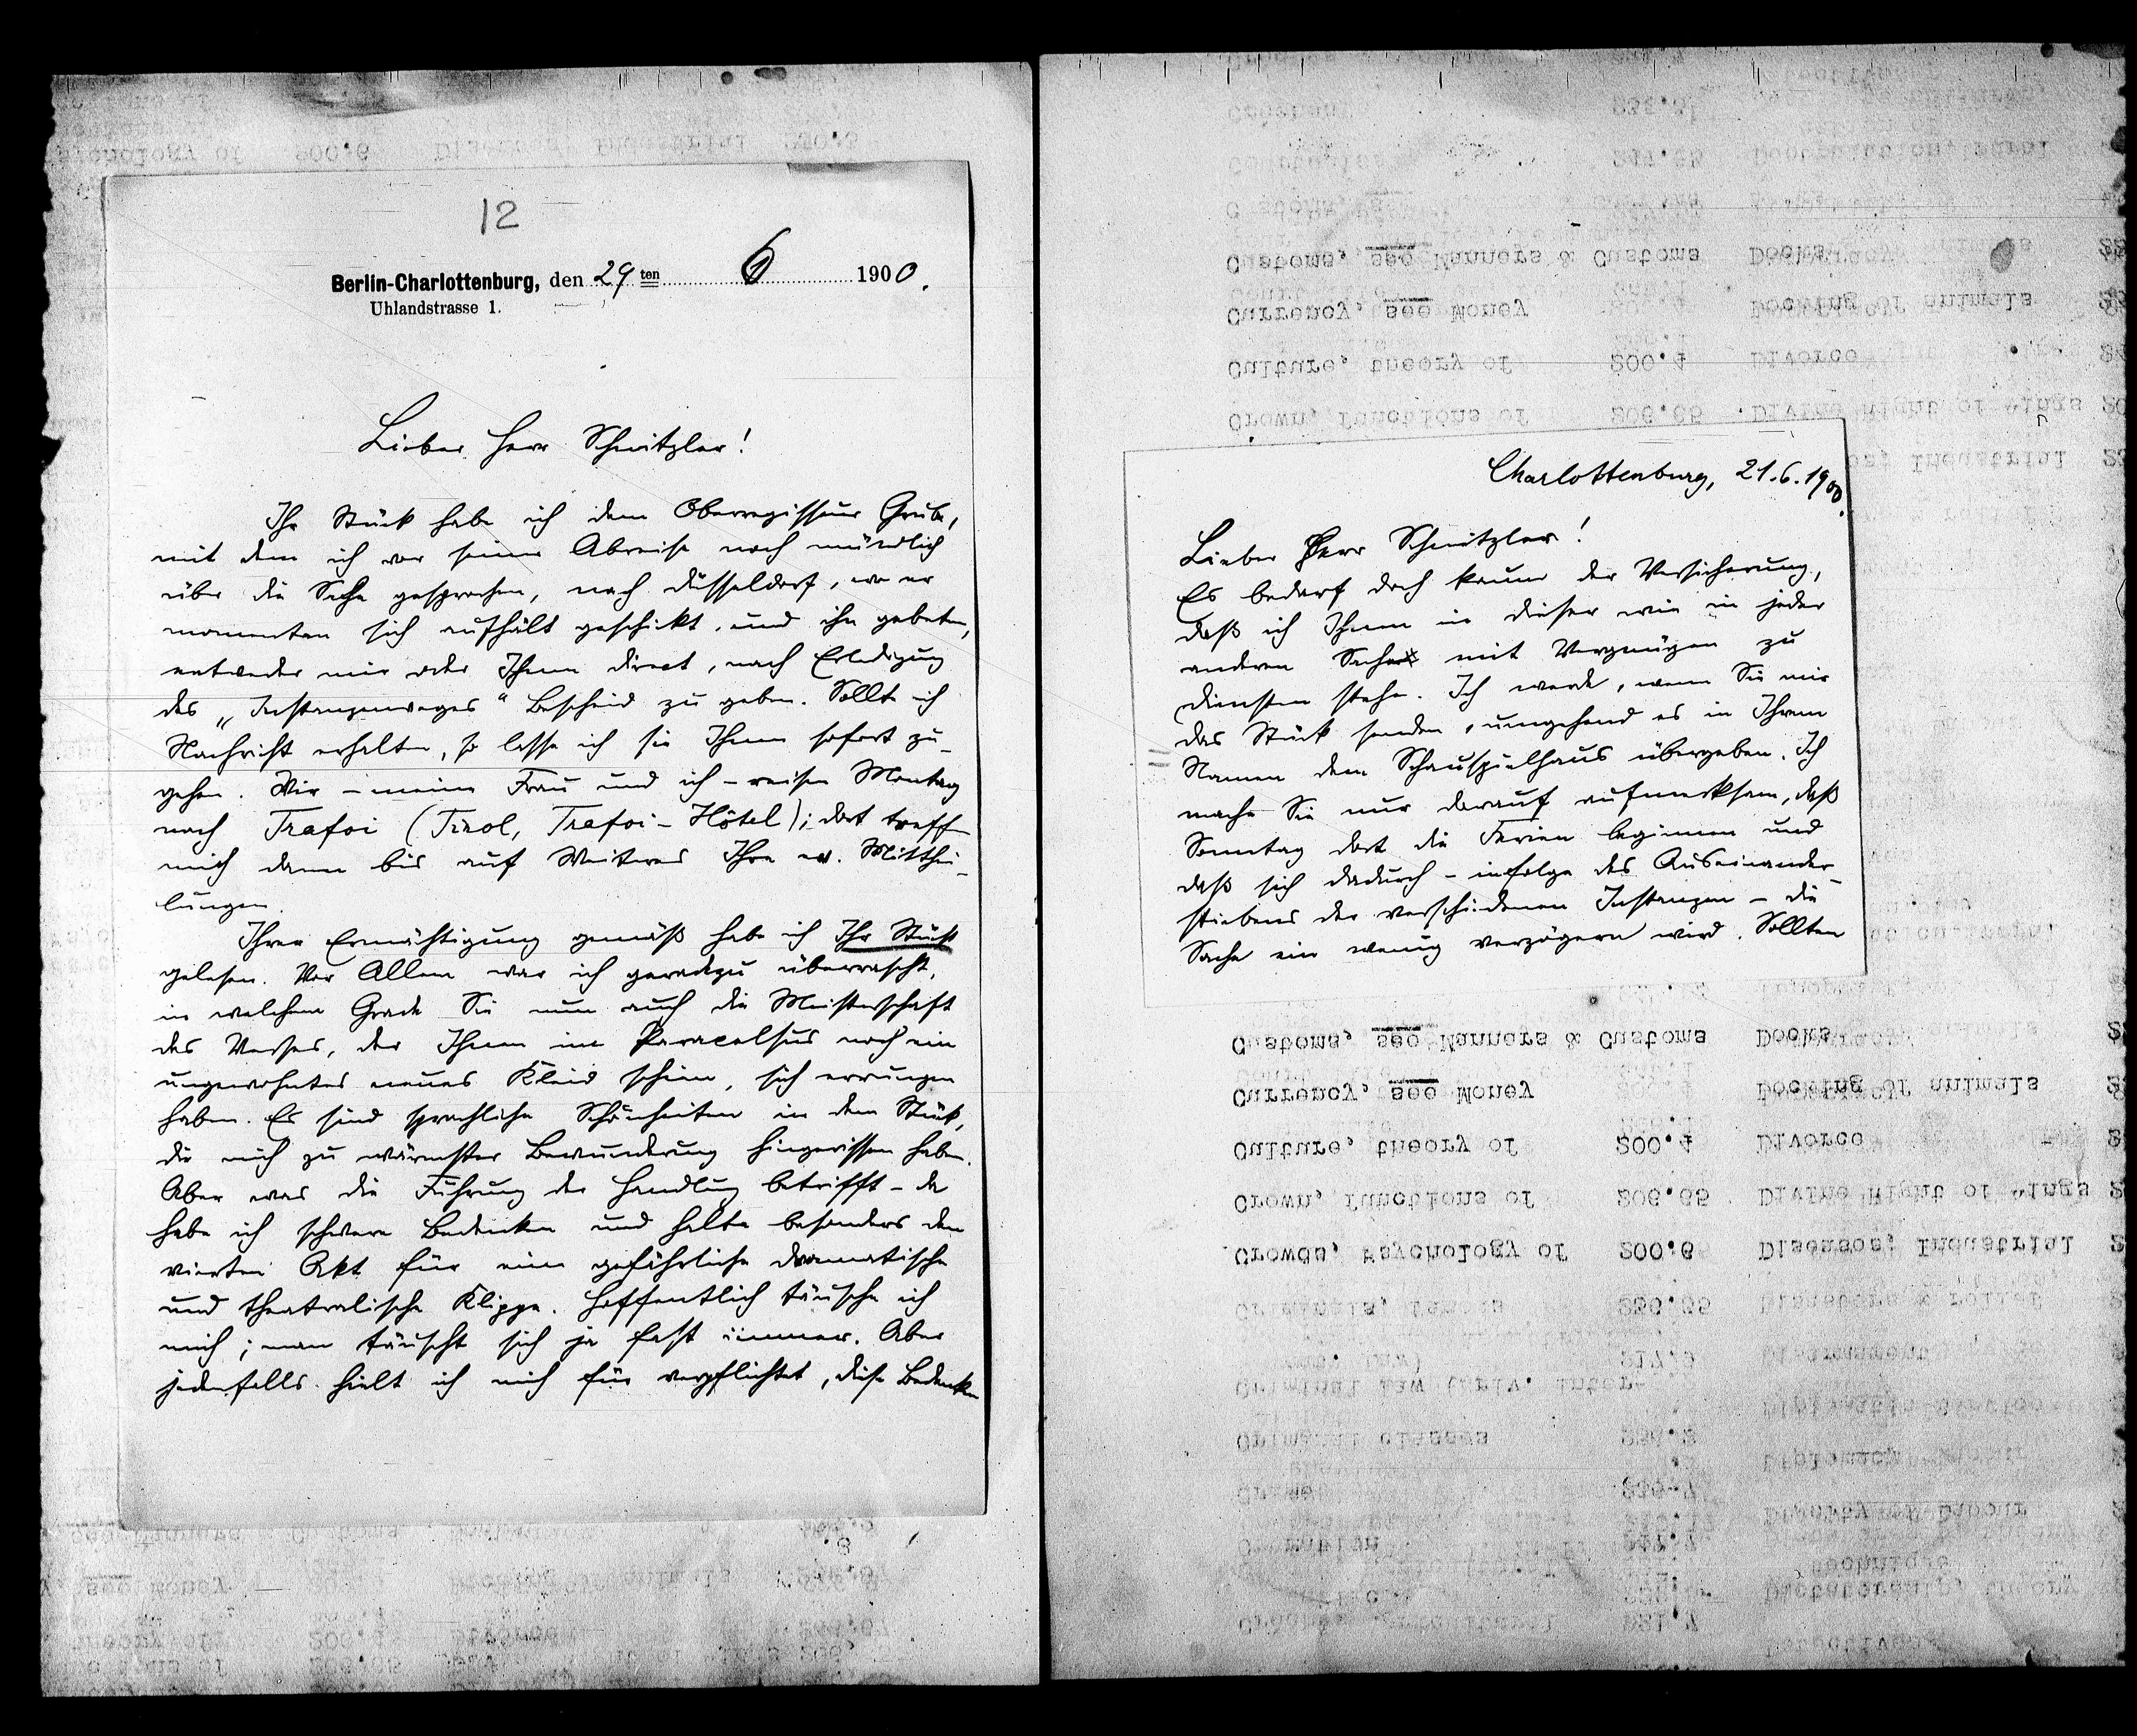 12
Berlin-Charlottenburg, den 29ten 6 1900.
Uhlandstrasse 1.
Lieber Herr Schnitzler!
Ihr Stück habe ich dem Oberregisseur Grube,
mit dem ich vor seiner Abreise noch mündlich
über die Sache gesprochen, nach Düsseldorf, wo er
momentan sich aufhält geschickt, und ihn gebeten,
entweder mir oder Ihnen direct, nach Erledigung
des „Instanzenweges“ Bescheid zu geben. Sollte ich
Nachricht erhalten, so lasse ich sie Ihnen sofort zu-
gehen. Wir – meine Frau und ich – reisen Montag
nach Trafoi (Tirol, Trafoi-Hôtel); dort treffen
mich dann bis auf Weiteres Ihre ev. Mitthei-
lungen.
Ihrer Ermächtigung gemäß habe ich Ihr Stück
gelesen. Vor Allem war ich geradezu überrascht,
in welchem Grade Sie nun auch die Meisterschaft
des Verses, der Ihnen im Paracelsus noch ein
ungewohntes neues Kleid schien, sich errungen
haben. Es sind sprachliche Schönheiten in dem Stück,
die mich zu wärmster Bewunderung hingerissen haben.
Aber was die Führung der Handlung betrifft – da
habe ich schwere Bedenken und halte besonders den
vierten Akt für eine gefährliche dramatische
und theatralische Klippe. Hoffentlich täusche ich
mich; man täuscht sich ja fast immer. Aber
jedenfalls hielt ich mich für verpflichtet, diese Bedenken
Charlottenburg, 21.6.1900.
Lieber Herr Schnitzler!
Es bedarf doch kaum der Versicherung,
daß ich Ihnen in dieser wie in jeder
anderen Sache mit Vergnügen zu
Diensten stehe. Ich werde, wenn Sie mir
das Stück senden, umgehend es in Ihrem
Namen dem Schauspielhaus übergeben. Ich
mache Sie nur darauf aufmerksam, daß
Sonntag dort die Ferien beginnen und
daß sich dadurch – infolge des Auseinander-
stiebens der verschiedenen Instanzen – die
Sache ein wenig verzögern wird. Sollten
Customs, see Manners & Customs Docks
Currency, see Money Docking of animals
Culture, theory of 200.4 Divorce
Crown, functions of 206.65 Divine Right of Kings
Crowds, Psychology of 200.6 Diseases, Industrial